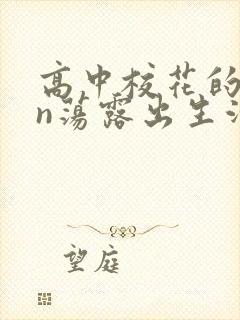 高中校花的
n荡露出生活
望庭